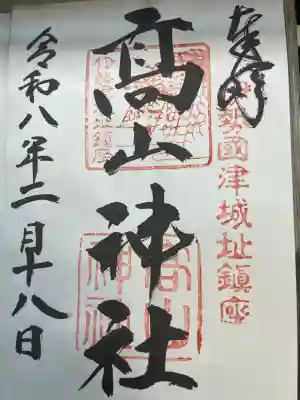 奉拝
伊勢國津城址鎮座
髙山神社
高山神社
令和八年二月十八日